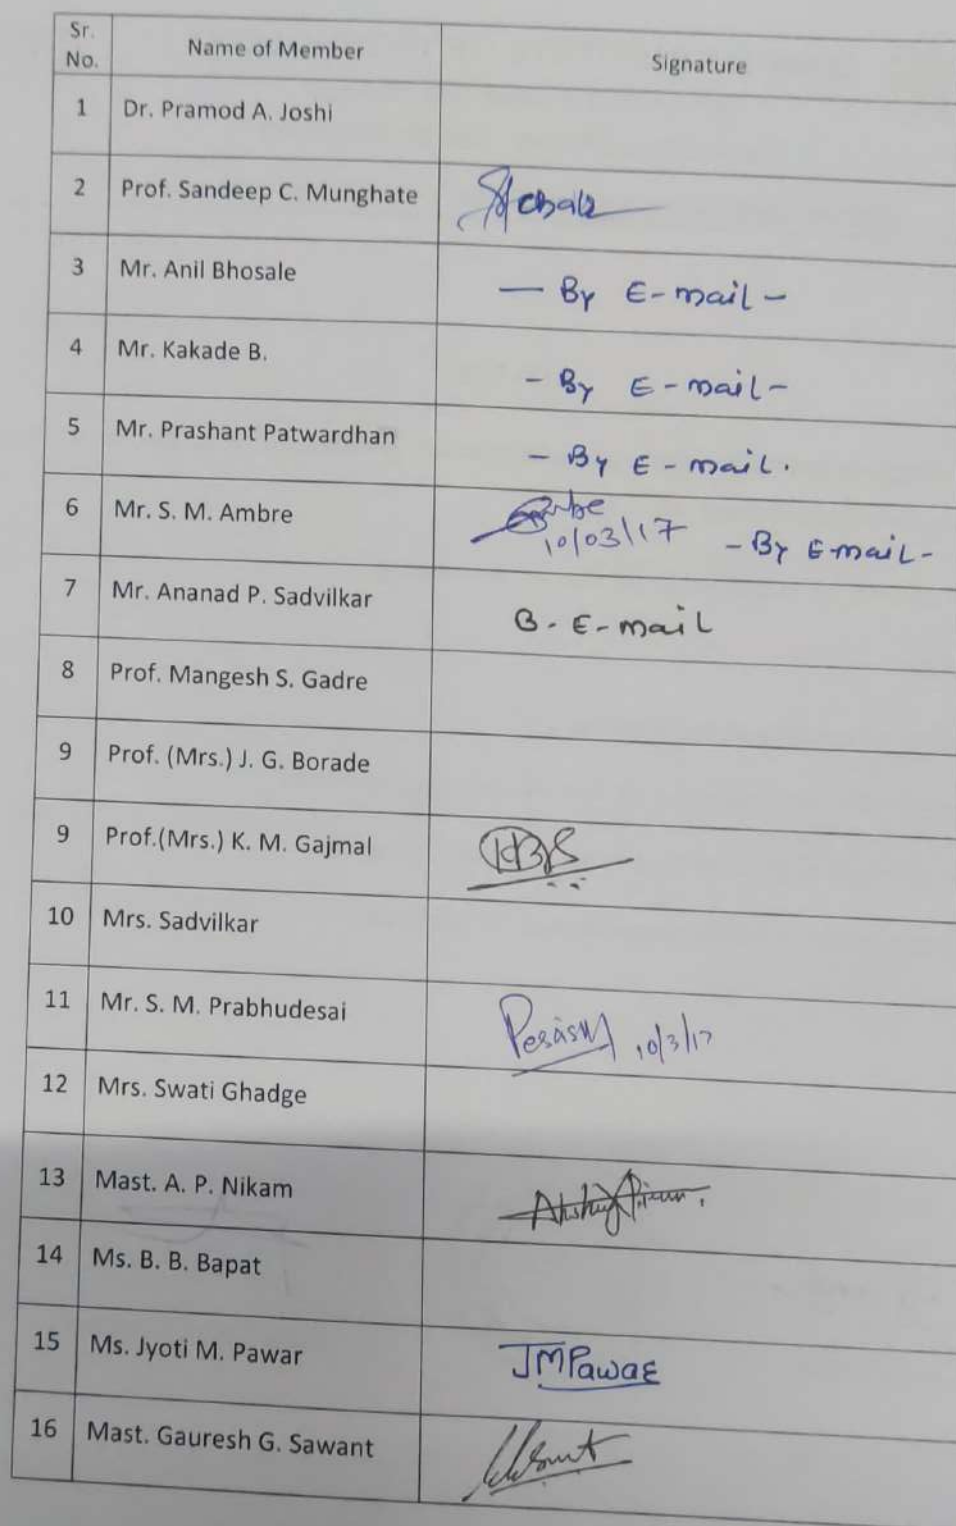 Sr. No. Name of Member Signature
1 Dr. Pramod A. Joshi
2 Prof. Sandeep C. Munghate
3 Mr. Anil Bhosale — By E-mail -
4 Mr. Kakade B. - By E-mail -
5 Mr. Prashant Patwardhan - By E-mail.
6 Mr. S. M. Ambre 10/03/17 - By E-mail -
7 Mr. Ananad P. Sadvilkar B. E-mail
8 Prof. Mangesh S. Gadre
9 Prof. (Mrs.) J. G. Borade
9 Prof.(Mrs.) K. M. Gajmal
10 Mrs. Sadvilkar
11 Mr. S. M. Prabhudesai 10/3/17
12 Mrs. Swati Ghadge
13 Mast. A. P. Nikam
14 Ms. B. B. Bapat
15 Ms. Jyoti M. Pawar JMPawar
16 Mast. Gauresh G. Sawant